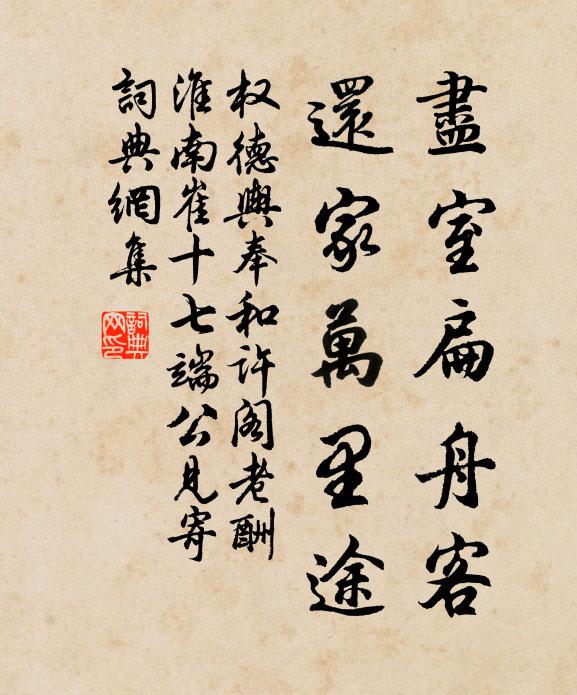 盡室扁舟客
還家萬里途
权德輿奉和许阁老酬
淮南崔十七端公見寄
詞典網集
詞典网印